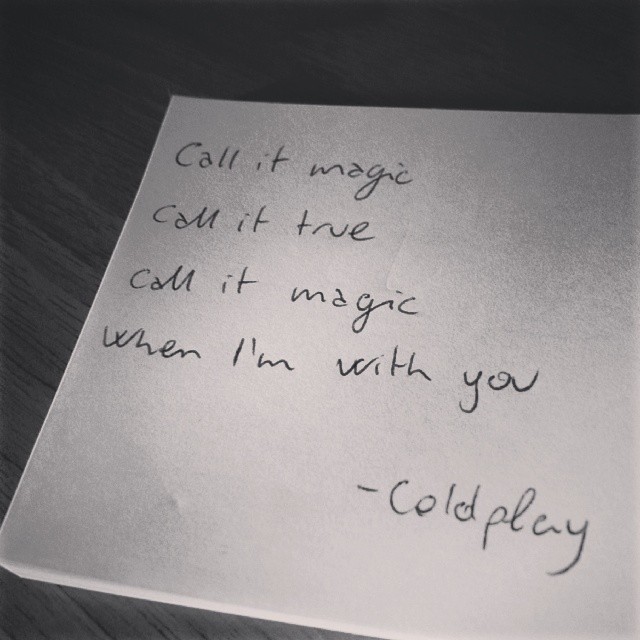 Call it magic
Call it true
Call it magic
when I'm with you
-Coldplay